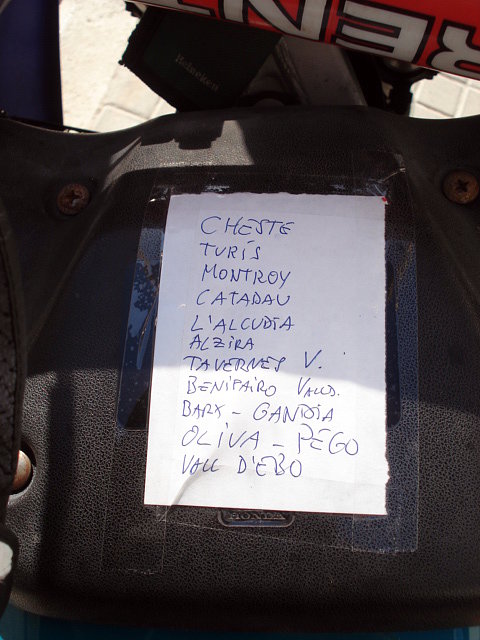 RENT
Heineken
CHESTE
TURÍS
MONTROY
CATADAU
L'ALCUDIA
ALZIRA
TAVERNES V.
BENIFAIRO VALLD.
BARX - GANDIA
OLIVA - PEGO
VALL D'EBO
HONDA